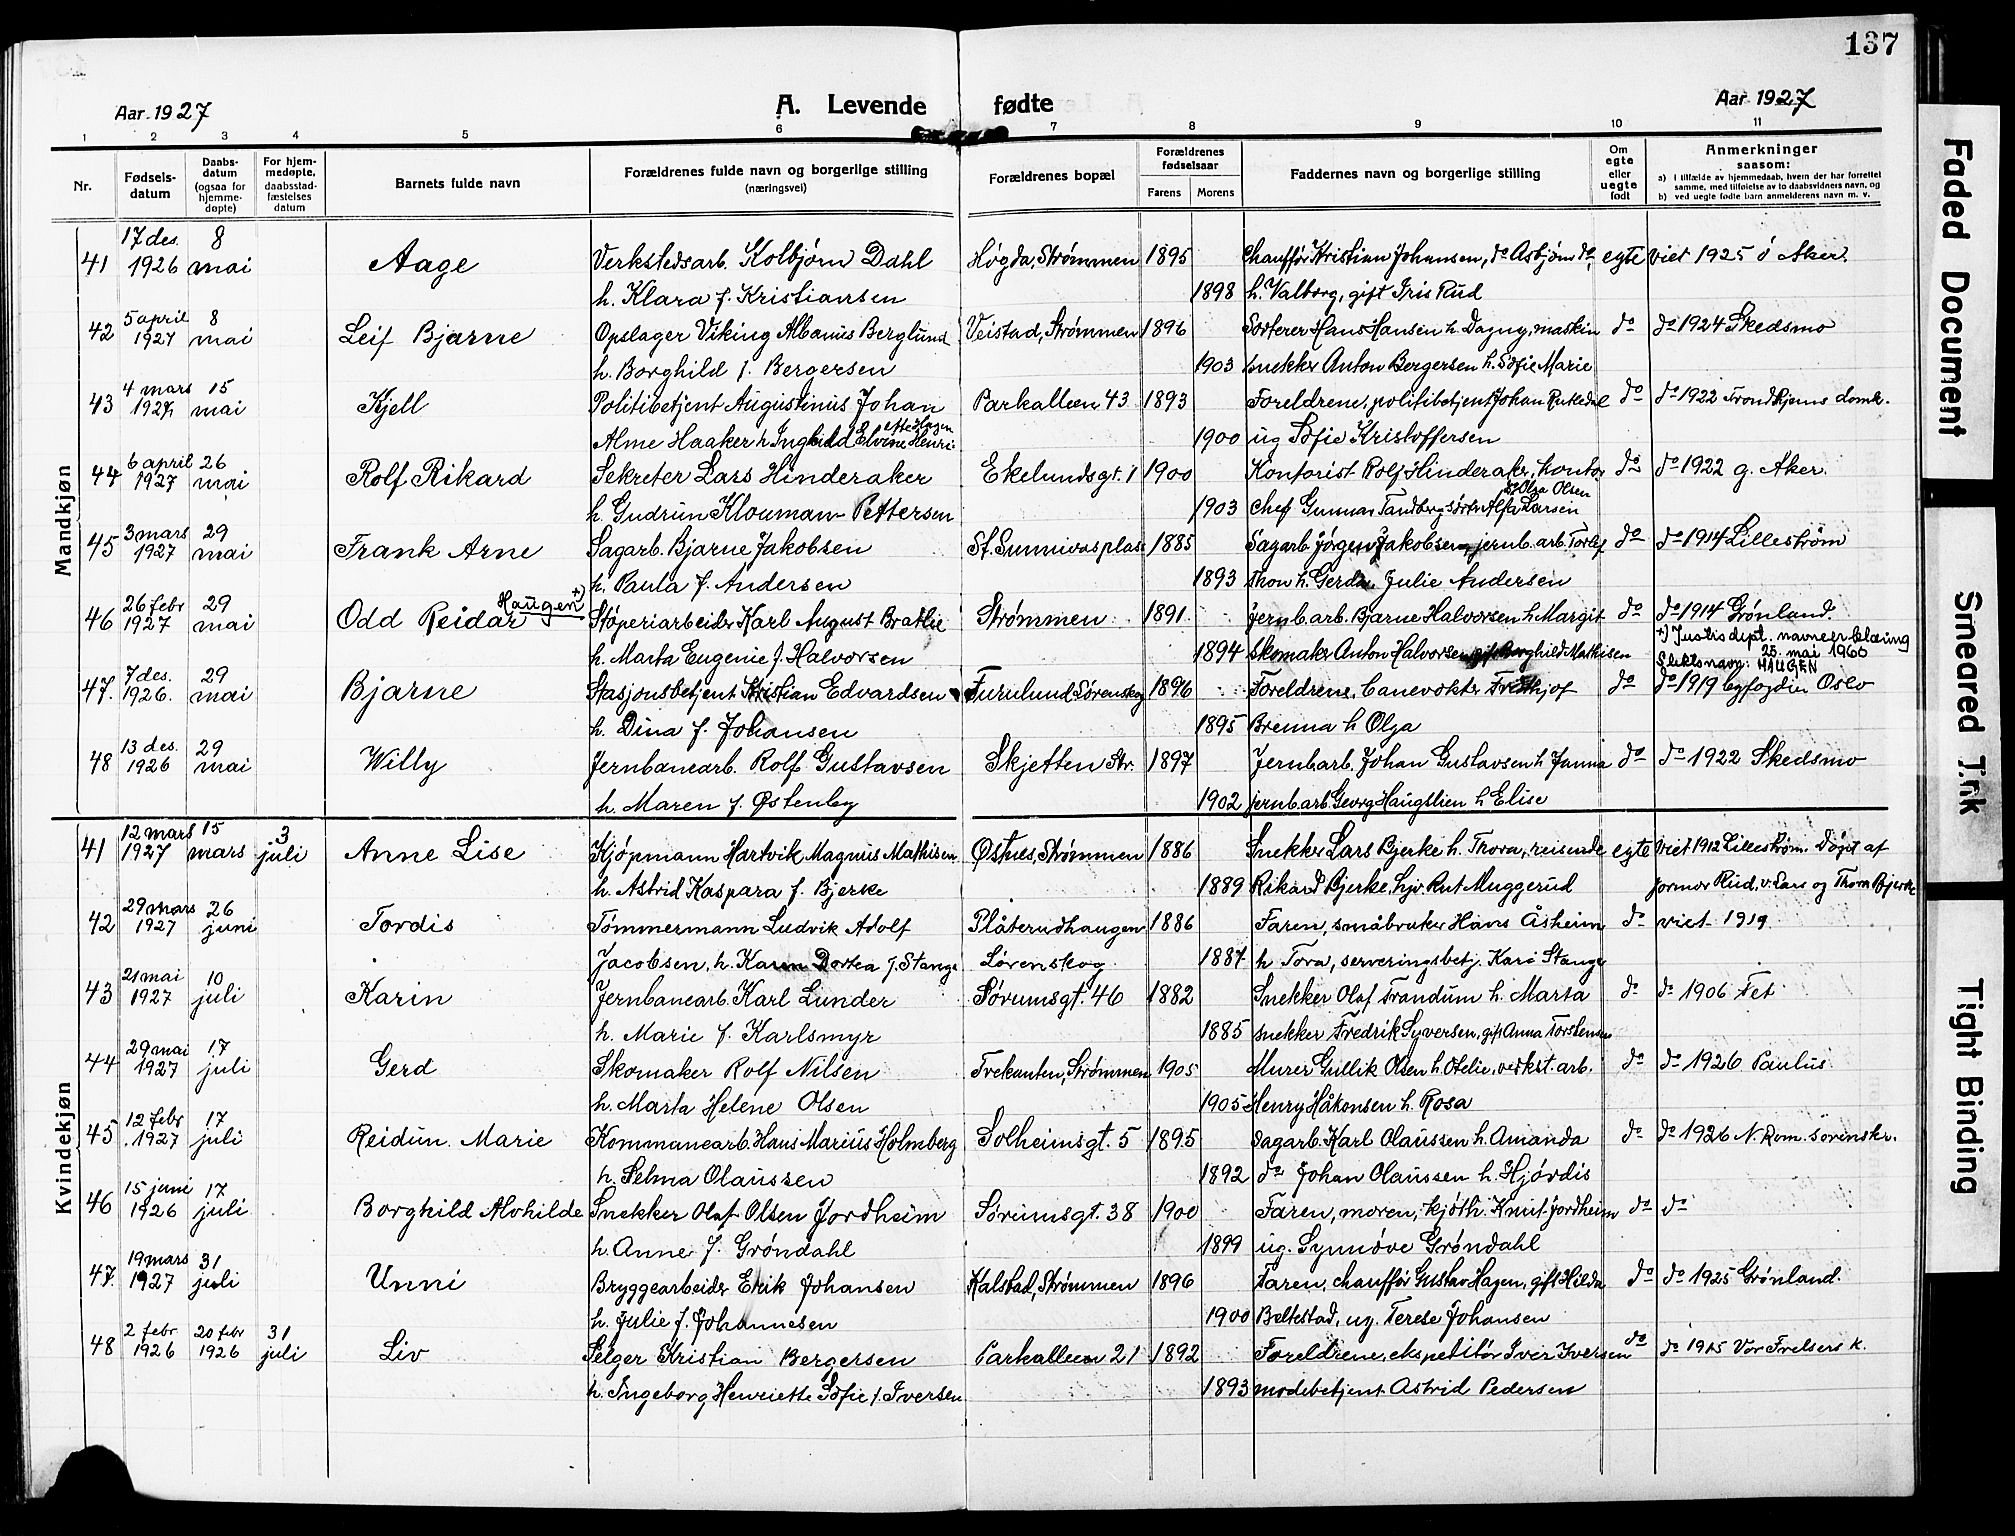 137
Aar 1927 A. Levende fødte Aar 1927
1 2 3 4 5 6 7 8 9 10 11
Nr. Fødsels-datum Daabs-datum (ogsaa for hjemme-døpte) For hjem-medøpte, daabsstad-fæstelses datum Barnets fulde navn Forældrenes fulde navn og borgerlige stilling (næringsvei) Forældrenes bopæl Forældrenes fødselsaar Farens Morens Faddernes navn og borgerlige stilling Om egte eller uegte født Anmerkninger saasom:
a) I tilfælde av hjemmedaab, hvem der har forrettet samme, med tilføielse av to daabsvidners navn, og
b) ved uegte fødte barn anmelderens navn m. v.
Mandkjøn
41 17 des. 1926 8 mai Aage Verkstedsarb. Kolbjørn Dahl Høgda, Strømmen 1895 Chauffør Kristian Johansen, do Asbjørn do, egte viet 1925 ö Aker.
h. Klara f. Kristiansen 1898 h. Valborg, gift Iris Rud
42 5 april 1927 8 mai Leif Bjarne Opslager Viking Albanus Berglund Veistad, Strømmen 1896 Sorterer Hans Hansen h Dagny, maskin do do 1924 Skedsmo
h. Borghild f. Bergersen 1903 snekker Anton Bergersen h. Sofie Marie
43 4 mars 1927 15 mai Kjell Politibetjent Augustinus Johan Parkalleen 43 1893 Foreldrene, politibetjent Johan do do 1922 Trondhjems domk.
Alme Haaker h Inghild Elvine Henri-ette Hagen 1900 ug Sofie Kristoffersen
44 6 april 1927 26 mai Rolf Rikard Sekretær Lars Hinderaker Ekelundsgt. 1 1900 Kontorist Rolf Hinderakr, kontor do do 1922 g. Aker.
h. Gudrun Klouman Pettersen 1903 chef Gunnar Tandberg Olga Olsen Alfa Larsen
45 3 mars 1927 29 mai Frank Arne Sagarb. Bjarne Jakobsen St. Sunnivasplass 1885 Sagarb. Jørgen Jakobsen, jernb.arb. Torlef do do 1914 Lillestrøm
h. Paula f. Andersen 1893 Thon h. Gerda, Julie Andersen
46 26 febr 1927 29 mai Odd Reidar Haugen +) Støperiarbeider Karl August Bratlie Strømmen 1891 Jernb.arb. Bjarne Halvorsen h Margit do do 1914 Grønland.
h. Marta Eugenie f. Halvorsen 1894 skomakr Anton Halvorsen, gift Borghild Mathisen +) Justisdept. navneerklæring 25. mai 1960
Slektsnavn: HAUGEN
47. 7 des. 1926. 29 mai Bjarne Stasjonsbetjent Kristian Edvardsen Furulund Lørenskog 1896 Foreldrene, banevoktr Fridthjof do do 1919 byfogden Oslo
h. Dina f. Johansen 1895 Brenna h Olga
48 13 des. 1926 29 mai Willy Jernbanearb. Rolf Gustavsen Skjetten Str. 1897 Jernb.arb. Johan Gustavsen h Janna do do 1922 Skedsmo
h. Maren f. Østenby 1902 jernb.arb Georg Haugslien h Elise
Kvindekjøn
41 12 mars 1927 15 mars 3 juli Anne Lise Kjøpmann Hartvik Magnus Mathisen Østnes, Strømmen 1886 Snekker Lars Bjerke h. Thora, reisende egte viet 1912 Lillestrøm. Døpt af
h. Astrid Kaspara f. Bjerke 1889 Rikard Bjerke, hjv. Rut Muggerud jormor Rud, v. Lars og Thora Bjerke
42 29 mars 1927 26 juni Tordis Tömmermann Ludvik Adolf Plåterudhaugen 1886 Faren, småbruker Hans Åsheim do viet 1919
Jacobsen, h. Karen Dortea f. Stange Lørenskog 1887 h Tora, serveringsbetj. Kari Stange
43 21 mai 1927 10 juli Karin Jernbanearb. Karl Lunder Sørumsgt. 46 1882 Snekker Olaf Trandum h. Marta do do 1906 Fet
h. Marie f. Karlsmyr 1885 snekker Fredrik Syversen, gift Anna Torstensen
44 29 mai 1927 17 juli Gerd Skomaker Rolf Nilsen Trekanten, Strømmen 1905 Murer Gullik Olsen h. Otelie, verkst. arb. do do 1926 Paulus
h. Marta Helene Olsen 1905 Henry Håkonsen h. Rosa
45 12 febr 1927 17 juli Reidun Marie Kommunearb. Hans Marius Holmberg Solheimsgt. 5 1895 Sagarb. Karl Olaussen h. Amanda do do 1926 N. Rom. sorenskr.
h. Selma Olaussen 1892 do Johan Olaussen h. Hjørdis
46 15 juni 1926 17 juli Borghild Alvhilde Snekker Olaf Olsen Jordheim Sørumsgt. 38 1900 Faren, moren, kjøth. Knut Jordheim do do
h. Anne f. Grøndahl 1899 ug. Synnöve Grøndahl
47 19 mars 1927 31 juli Unni Bryggearbeider Erik Johansen Kalstad, Strømmen 1896 Faren, chauffør Gustav Hagen, gift Hilda do do 1925 Grønland.
h. Julie f. Johannesen 1900 Beltestad, ug. Terese Johansen
48 2 febr 1926 20 febr 1926 31 juli Liv Selger Kristian Bergersen Parkalleen 21 1892 Foreldrene, ekspeditör Iver Iversen do do 1915 Vår Frelsers k.
h. Ingeborg Henriette Sofie f. Iversen 1893 modebetjent Astrid Pedersen
Faded Document
Smeared Ink
Tight Binding